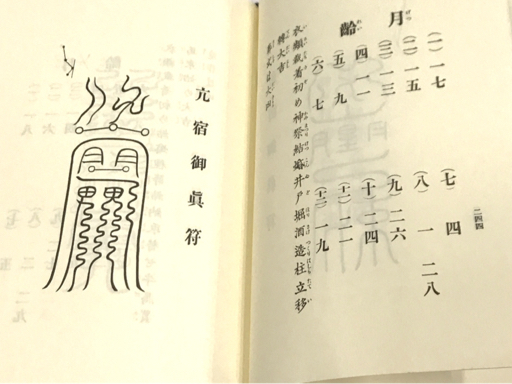 二四四
月齢
(一) 一七
(二) 一五
(三) 一三
(四) 一一
(五) 九
(六) 七
(七) 四
(八) 一 二八
(九) 二六
(十) 二四
(十一) 二一
(十二) 一九
衣類裁着初め神祭結婚井戸堀酒造柱立移
轉大吉
葬式は大凶
亢宿御眞符